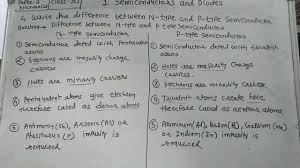 Class - XII
1 Semiconductors and Diodes
4. Write the difference between N-type and P-type Semiconductor
Solution → Difference between N-type and P-type Semiconductors
N-type Semiconductor
P-type Semiconductor
① Semiconductor doped with pentavalent atoms
② Electrons are majority charge carriers
③ Holes are minority carriers
④ Pentavalent atoms give electron therefore called as donor atoms
⑤ Antimony (Sb), Arsenic (As) or Phosphorus (P) impurity is required
① Semiconductor doped with trivalent atoms
② Holes are majority charge carriers.
③ Electrons are minority carriers.
④ Trivalent atoms create hole therefore called as acceptor atoms
⑤ Aluminium (Al), Boron (B), Gallium (Ga) or Indium (In) impurity is required